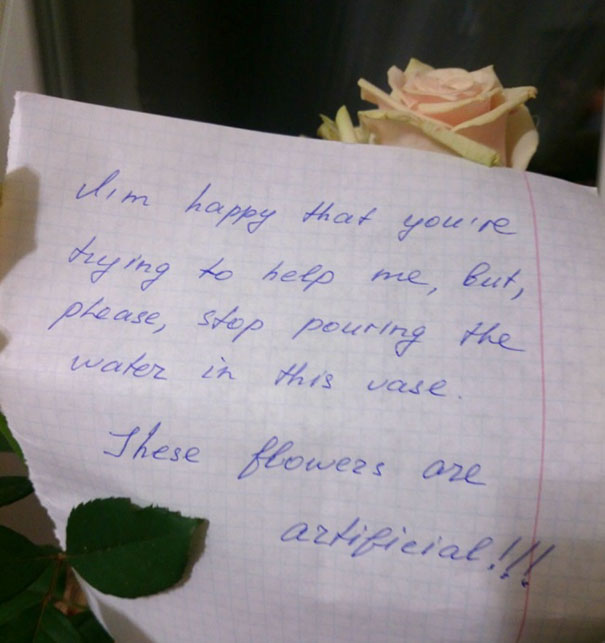 I'm happy that you're
trying to help me, but,
please, stop pouring the
water in this vase.
These flowers are
artificial!!!